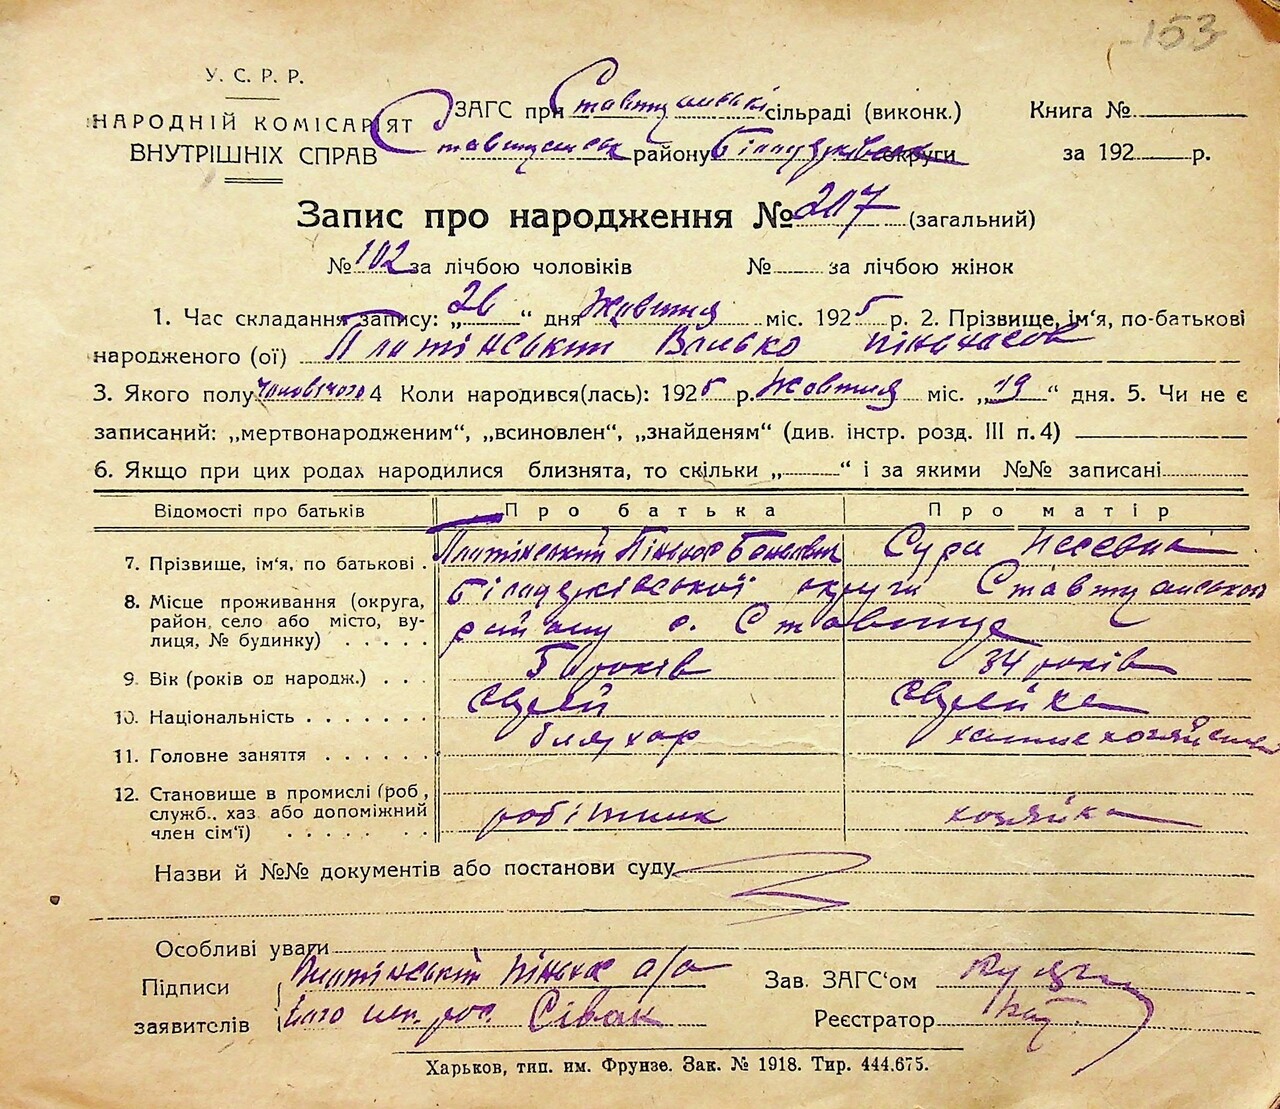 153
У. С. Р. Р.
НАРОДНІЙ КОМІСАРІЯТ
ВНУТРІШНІХ СПРАВ
ЗАГС при Ставищанські сільраді (виконк.)
Ставищанськ району Білоцерківськ округи
Книга №
за 192 р.
Запис про народження № 207 (загальний)
№ 102 за лічбою чоловіків № за лічбою жінок
1. Час складання запису: „26“ дня Жовтня міс. 1925 р. 2. Прізвище, ім‘я, по-батькові
народженого (ої) Платінський Волько Піньхасов
3. Якого полу чоловічого 4 Коли народився(лась): 1925 р. Жовтня міс. „19“ дня. 5. Чи не є
записаний: „мертвонародженим“, „всиновлен“, „знайденям“ (див. інстр. розд. III п. 4)
6. Якщо при цих родах народилися близнята, то скільки „ “ і за якими №№ записані
Відомості про батьків Про батька Про матір
7. Прізвище, ім‘я, по батькові . Платінський Піньхас Сура
8. Місце проживання (округа, район, село або місто, вулиця, № будинку) . . . . . Білоцерківської округи Ставищанського
району с. Ставище
9. Вік (років од народж.) . . . років 34 років
10. Національність . . . . . . . Єврей Єврейка
11. Головне заняття . . . . . . бляхар
12. Становище в промислі (роб, служб., хаз або допоміжний член сім‘ї) . . . . . . робітник хозяйка
Назви й №№ документів або постанови суду
Особливі уваги
Підписи Платінський Піньхас а/а
заявителів Сівак
Зав. ЗАГС‘ом
Реєстратор
Харьков, тип. им. Фрунзе. Зак. № 1918. Тир. 444.675.